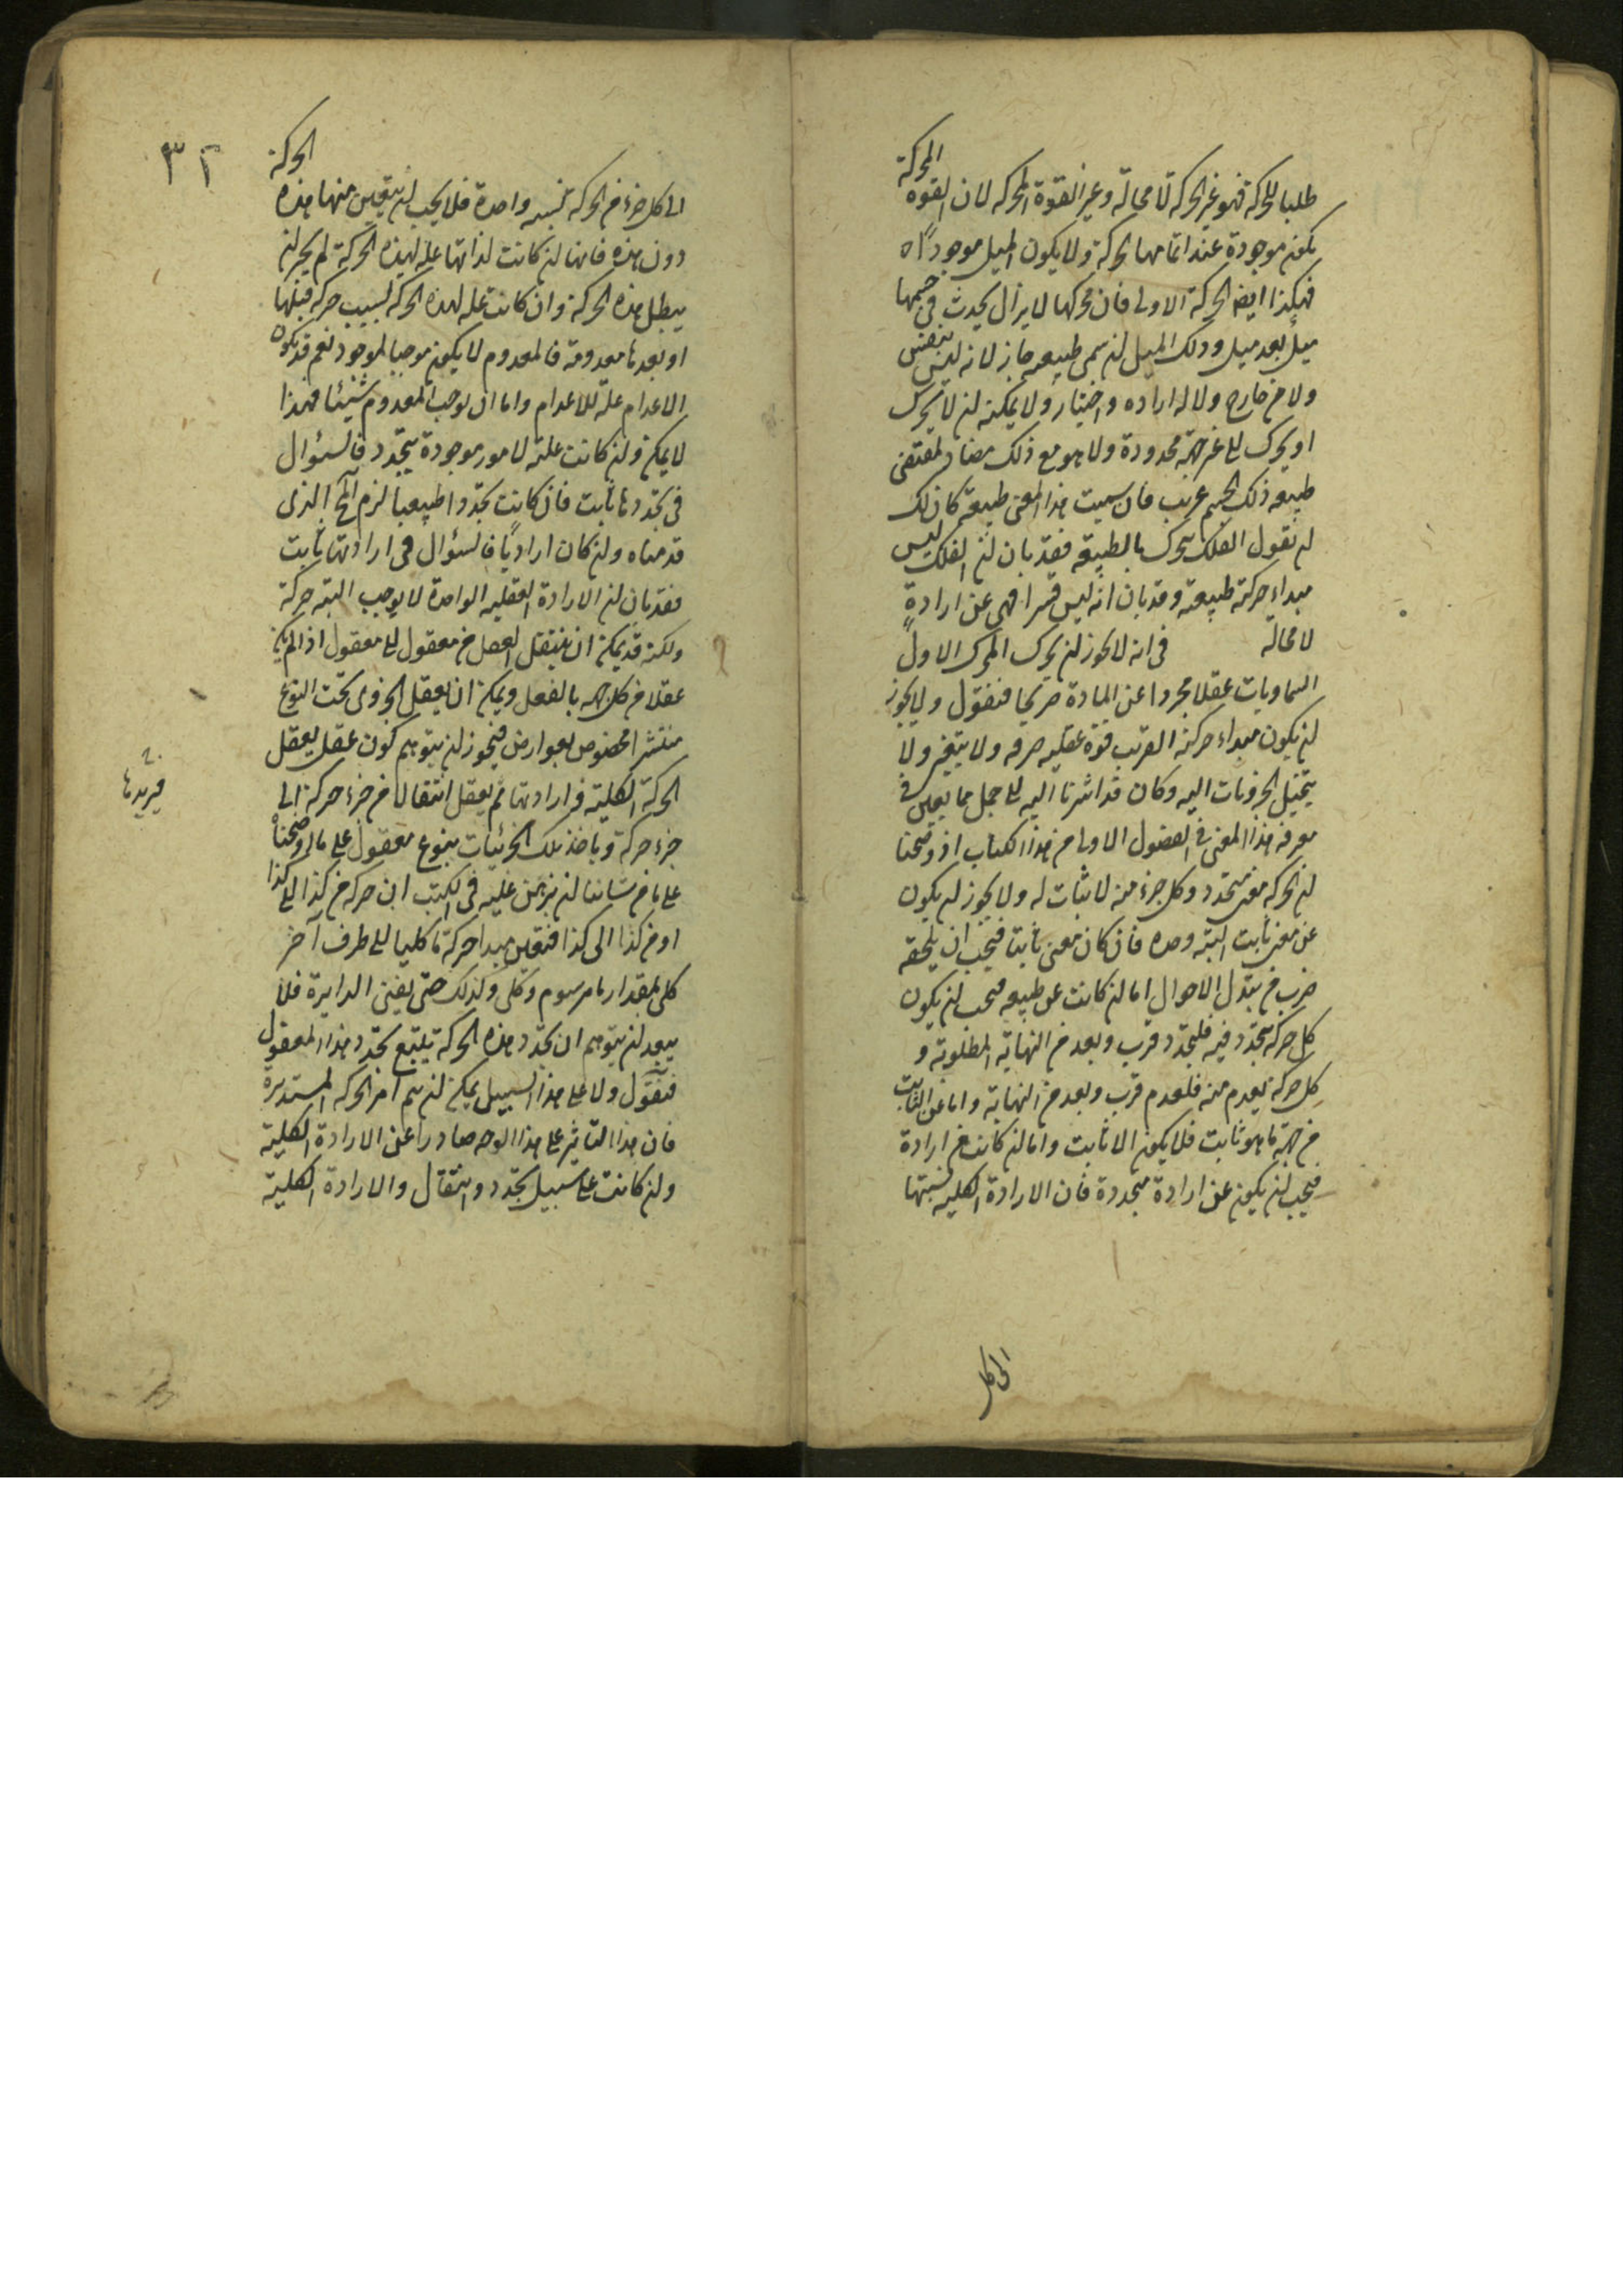 المحركة
طلبا للحركة فهو غير الحركة لا محالة وغير القوة المحركه لان القوه
تكون موجودة عند اتمامها الحركة ولا يكون الميل موجودًا ه
فهكذا ايضا الحركة الاولى فان محركها لا يزال يحدث في جسمها
ميل بعد ميل وذلك الميل لن سمى طبيعه جاز لانه ليس بنفس
ولا من خارج ولا له اراده واختيار ولا يمكنه لن لا يحرك
او يحرك الى غير جهة محدودة ولا هو مع ذلك مضاد لمقتضى
طبيعه ذلك الجسم غريب فان سميت هذا المعنى طبيعة كان لك
لن تقول الفلك يتحرك بالطبيعة فقد بان لن الفلك ليس
مبداء حركته طبيعة وقد بان انه ليس قسرا فهى عن ارادةٍ
لا محالة في انه لا يجوز لن يحرك المحرك الاول
السماويات عقلا مجردا عن المادة صريحا فنقول ولا يجوز
لن يكون مبداء حركته القريب قوة عقليه صرفه ولا يتغير ولا
يتخيل الجزويات اليه وكان قد اشرنا اليه الى جمل مما يعين في
معرفة هذا المعنى في الفصول الاولى من هذا الكتاب اذ وضحنا
لن الحركه معنى متجدد وكل جزء منه لا ثبات له ولا يجوز لن يكون
عن معنى ثابت البته وحده فان كان معنى ثابتا فيجب ان يلحقه
ضرب من تبدل الاحوال اما لن كانت عن طبيعه فيجب لن يكون
كل حركه يتجدد فيه فلتجدد قرب وبعد من النهاية المطلوبة و
كل حركة يعدم منه فلعدم قرب وبعد من النهاية واما عن الثابت
من جهة ما هو ثابت فلا يكون الا ثابت واما لن كانت عن ارادة
فيجب لن يكون عن ارادة متجددة فان الارادة الكليه نسبتها
الى كل
٣٢
الحركة
الى كل جزء من الحركة نسبه واحدة فلا يجب لن يتعين منها هذه
دون هذه فانها لن كانت لذاتها علة لهذه الحركة لم يجز لن
يبطل هذه الحركة وان كانت علة لهذه الحركة بسبب حركه قبلها
او بعدها معدومة فالمعدوم لا يكون موجبا لموجود نعم قد يكون
الاعدام علة للاعدام واما ان يوجب المعدوم شيئا فهذا
لا يمكن ولن كانت علته لامور موجودة يتجدد فالسؤال
في تجددها ثابت فان كانت تجددا طبيعيا لزم المحال الذى
قدمناه ولن كان اراديا فالسؤال في ارادتها ثابت
فقد بان لن الارادة العقليه الواحدة لا يوجب البته حركة
ولكنه قد يمكن ان ينتقل العقل من معقول الى معقول اذا لم يكن
عقلا من كل جهه بالفعل ويمكن ان يعقل الجزوى تحت النوع
منتشرا مخصوص بعوارض فيجوز لن يتوهم كون عقل يعقل
الحركة الكلية وارادتها ثم يعقل انتقالا من جزء حركة الى
ويريدها
جزء حركة وياخذ تلك الجزئيات بنوع معقول على ما اوضحناه
على ما من شاننا لن نبرهن عليه في الكتب ان حركه من كذا الى كذا
او من كذا الى كذا فنعين مبدا حركة ما كليا الى طرف آخر
كلى بمقدار ما مرسوم وكلى وكذلك حتى يفنى الدايرة فلا
يبعد لن يتوهم ان تجدد هذه الحركة يتبع تجدد هذا المعقول
فنقول ولا على هذا السبيل يمكن لن يتم امر الحركه المستديرة
فان هذا التاثير على هذا الوجه صادرا عن الارادة الكلية
ولن كانت على سبيل تجدد وانتقال والارادة الكلية